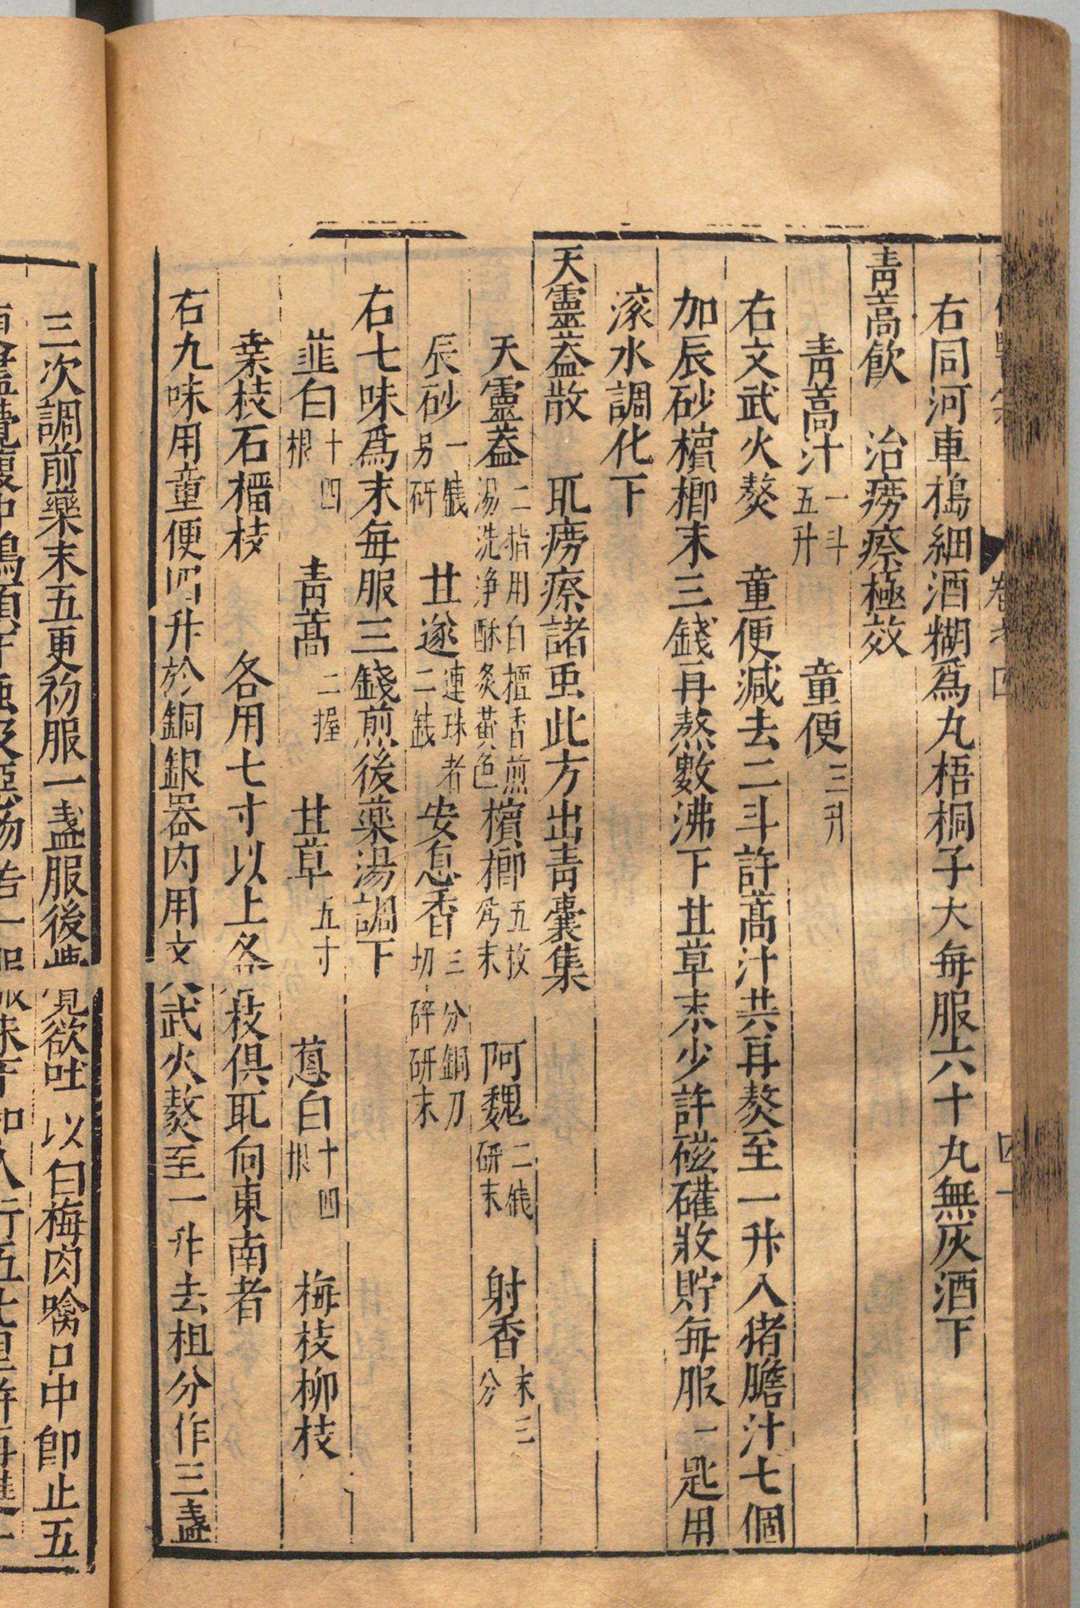 右同河車搗細酒糊爲丸梧桐子大每服六十丸無灰酒下
青蒿飲　治癆瘵極效
青蒿汁一斗五升　童便三升
右文武火熬　童便減去二斗許蒿汁共再熬至一升入猪膽汁七個
加辰砂檳榔末三錢再熬數沸下甘草末少許磁礶收貯每服一匙用
滚水調化下
天靈蓋散　取癆瘵諸虫此方出青囊集
天靈蓋二指用白檀香煎湯洗净酥炙黃色　檳榔五枚爲末　阿魏二錢研末　射香末三分
辰砂一錢另研　甘遂連珠者二錢　安息香三分銅刀切碎研末
右七味爲末每服三錢煎後藥湯調下
韮白十四根　青蒿二握　甘草五寸　蔥白十四根　梅枝柳枝
桒枝石榴枝　各用七寸以上各枝俱取向東南者
右九味用童便四升於銅銀器内用文武火熬至一升去柤分作三盞
三次調前藥末五更初服一盞服後覺欲吐以白梅肉噙口中即止五